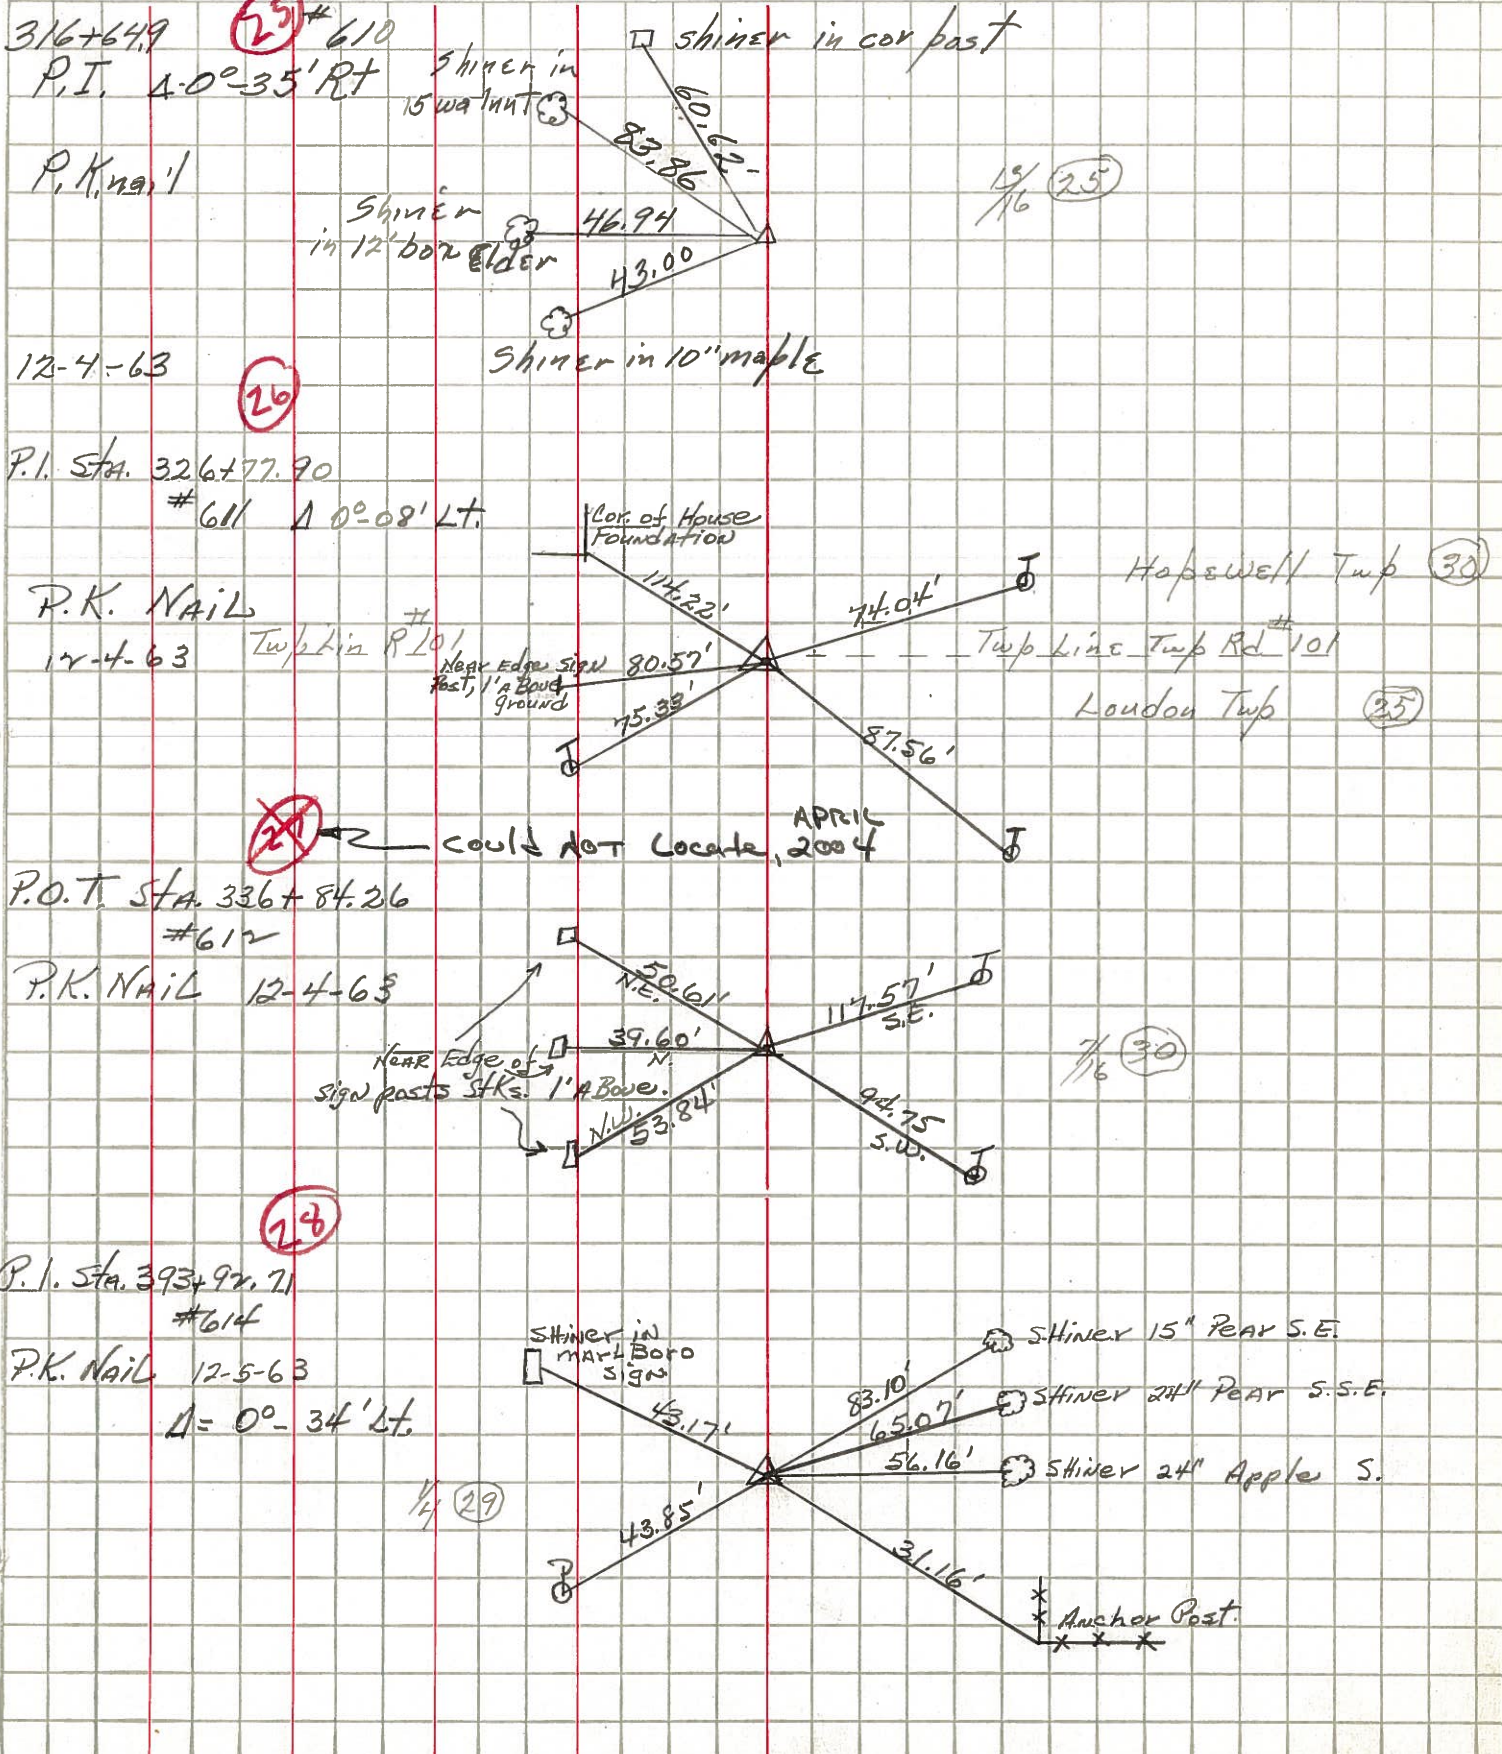 316+64.9 25 #610
P.I. Δ-0°-35' Rt
P.K. nail
shiner in cor post
Shiner in
15 walnut
60.62
83.86
Shiner
in 12' box Elder
46.94
43.00
Shiner in 10" maple
13/16 25
12-4-63
26
P.I. Sta. 326+77.90
#611 Δ 0°-08' Lt.
P.K. NAiL
12-4-63
Twp Lin R #101
Cor. of House
Foundation
114.22'
74.04'
Near Edge sign
Post, 1' ABove
ground
80.57'
75.33'
87.56'
Hopewell Twp 30
Twp Line Twp Rd #101
Loudon Twp 25
27
could NOT Locate, APRIL
2004
P.O.T. Sta. 336+84.26
#612
P.K. NAiL 12-4-63
50.61'
N.E.
39.60'
N.
N.W.
53.84'
117.57'
S.E.
94.75
S.W.
NEAR Edge of
sign posts StKs. 1' ABove.
7/16 30
28
P.I. Sta. 393+92.71
#614
P.K. NAiL 12-5-63
Δ= 0°-34' Lt.
SHiner in
marlBoro
sign
43.17'
83.10'
65.07'
56.16'
43.85'
31.16'
SHiner 15" Pear S.E.
SHiner 24" Pear S.S.E.
SHiner 24" Apple S.
Anchor Post.
1/4 29